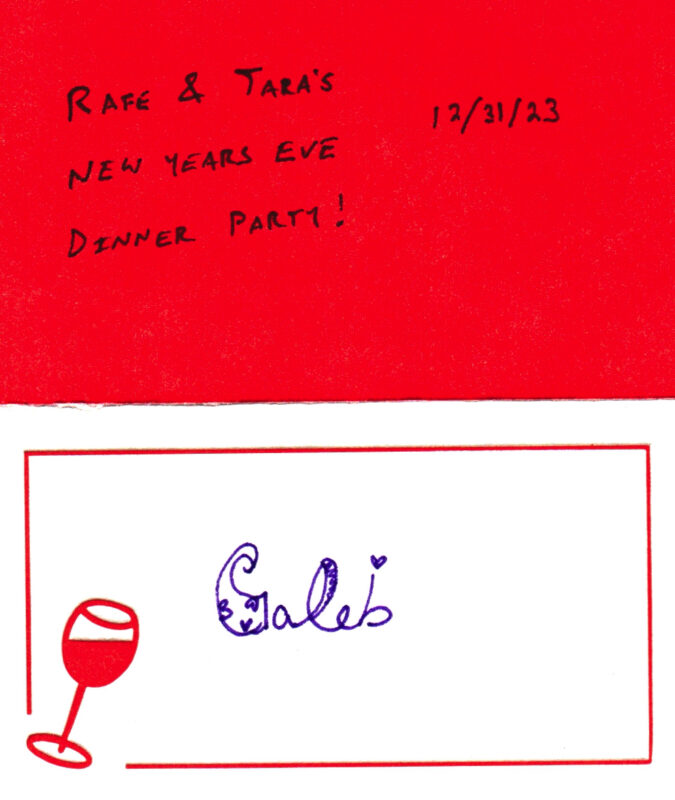 RAFE & TARA'S
12/31/23
NEW YEARS EVE
DINNER PARTY!
Caleb